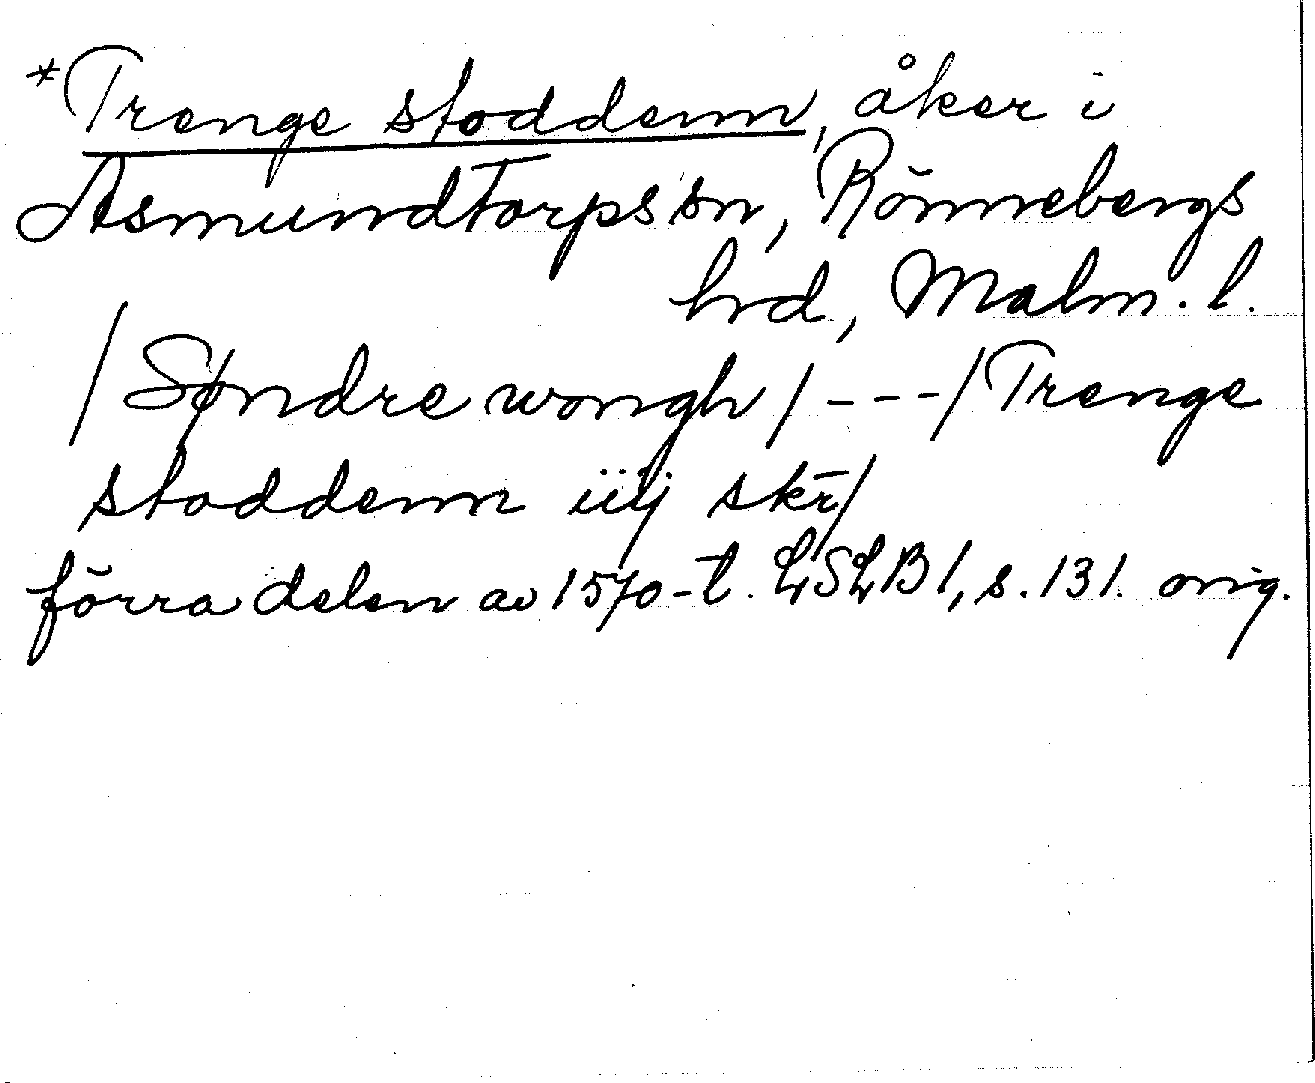 *Trenge stoddenn, åker i
Asmundtorps sn, Rönnebergs
hrd, Malm. l.
/Søndre wongh/---/Trenge
stoddenn iiij skr̄/
förra delen av 1570-t. LSLB 1, s. 131. orig.